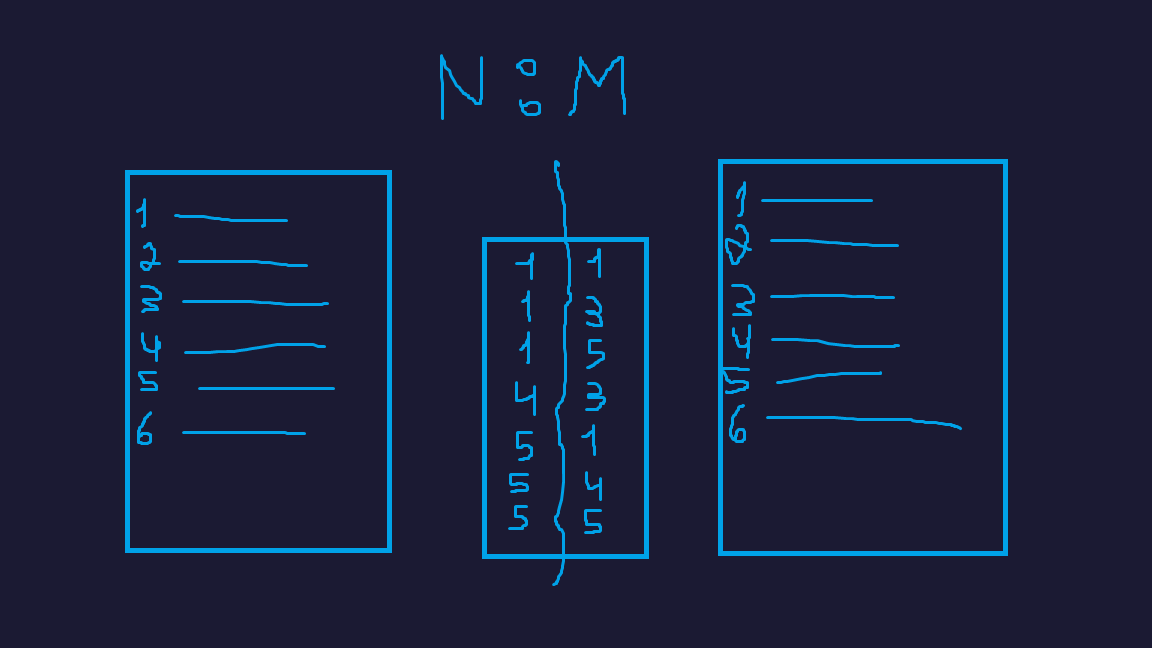 N : M
1
2
3
4
5
6
1 1
1 3
1 5
4 3
5 1
5 4
5 5
1
2
3
4
5
6